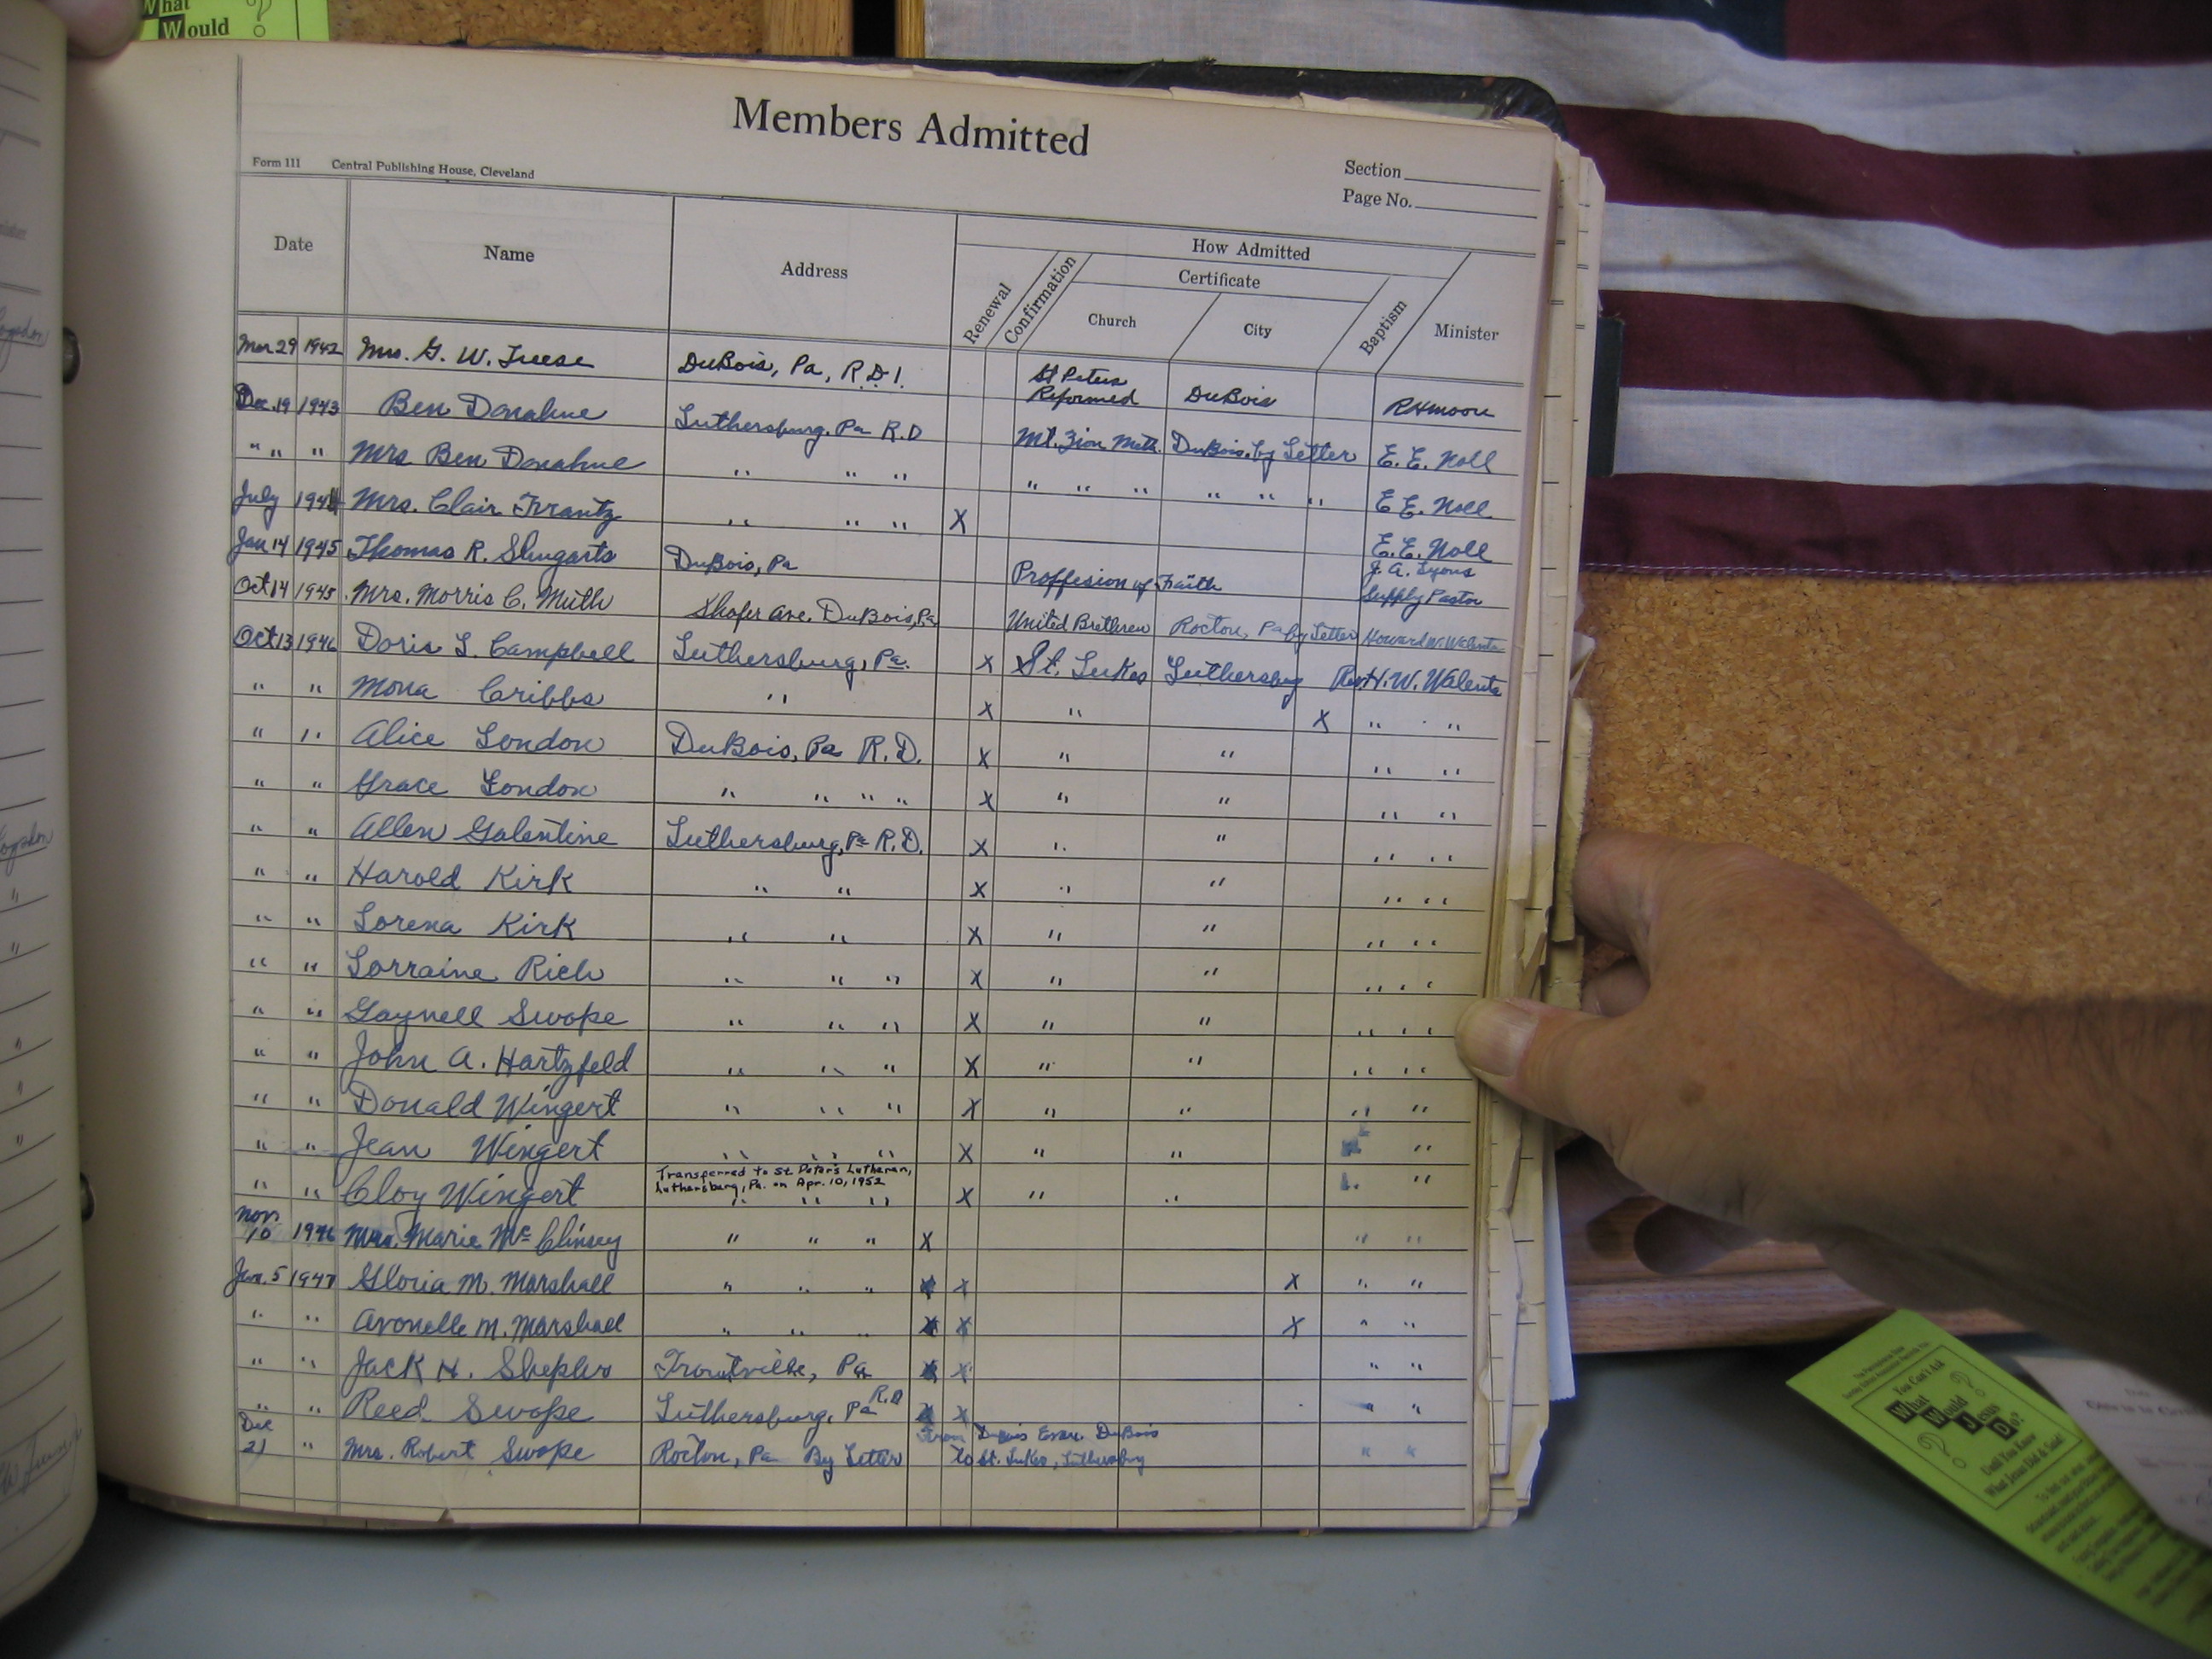 What
Would ?
Members Admitted
Form 111 Central Publishing House, Cleveland
Section
Page No.
Date Name Address Renewal Confirmation How Admitted Certificate Church City Baptism Minister
Mar 29 1942 Mrs. G. W. Treese DuBois, Pa, R.D 1. St Peters Reformed DuBois RHMoore
Dec. 19 1943 Ben Donahue Luthersburg, Pa R.D Mt. Zion Meth. DuBois, by Letter E. E. Noll
" " " Mrs Ben Donahue " " " " " " " " " E. E. Noll
July 1944 Mrs. Clair Frantz " " " X E. E. Noll
Jan 14 1945 Thomas R. Shugarts DuBois, Pa Proffesion of Faith J. A. Lyons Supply Pastor
Oct 14 1945 Mrs. Morris C. Muth Shafer Ave. DuBois, Pa United Brethren Rocton, Pa by Letter Howard W. Walenta
Oct 13 1946 Doris L. Campbell Luthersburg, Pa. X X St. Lukes Luthersburg Rev H. W. Walenta
" " Mona Cribbs " X " X " "
" " Alice London DuBois, Pa R.D. X " " " "
" " Grace London " " " " X " " " "
" " Allen Galentine Luthersburg, Pa R.D. X " " " "
" " Harold Kirk " " X " " " "
" " Lorena Kirk " " X " " " "
" " Lorraine Rich " " " X " " " "
" " Gaynell Swope " " " X " " " "
" " John A. Hartzfeld " " " X " " " "
" " Donald Wingert " " " X " " " "
" " Jean Wingert " " " X " " "
Transferred to St. Peter's Lutheran,
Luthersburg, Pa. on Apr. 10, 1952
" " Cloy Wingert " " " X " " "
Nov 10 1946 Mrs. Marie McClinsey " " " X " "
Jan. 5 1947 Gloria M. Marshall " " " X X " "
" " Avonelle M. Marshall " " " X X " "
" " Jack H. Shepler Troutville, Pa X " "
" " Reed Swope Luthersburg, Pa R.D X " "
Dec 21 " Mrs. Robert Swope Rocton, Pa By Letter From DuBois Evan. DuBois to St. Lukes, Luthersburg " "
You Can't Ask
What
Would
Jesus
Do?
Until You Know
What Jesus Did & Said!